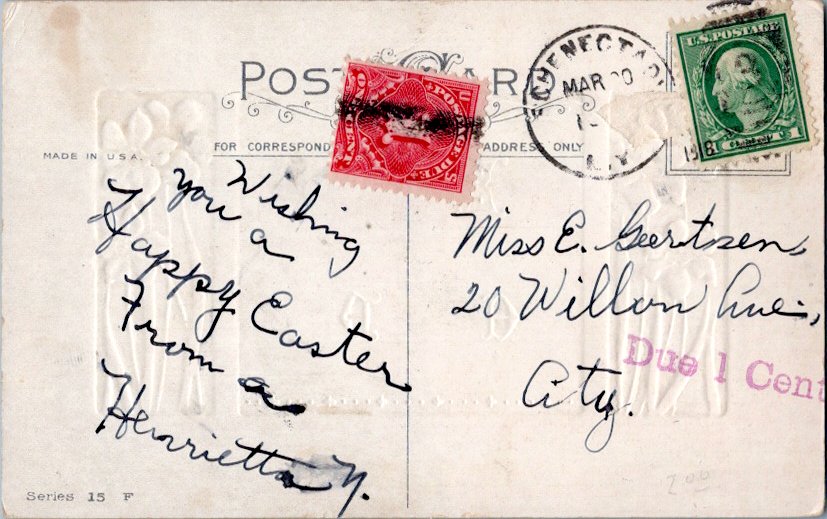 POST CARD
FOR CORRESPOND
ADDRESS ONLY
MADE IN U.S.A.
SCHENECTADY
MAR 20
N.Y.
1918
U.S. POSTAGE
1
U.S. POSTAGE DUE
ONE CENT
Wishing
you a
Happy Easter
From a
Henrietta N.
Miss E. Geertsen,
20 Willow Ave.,
City.
Due 1 Cent
Series 15 F
200